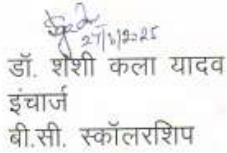 27/8/2025
डॉ. शशी कला यादव
इंचार्ज
बी.सी. स्कॉलरशिप